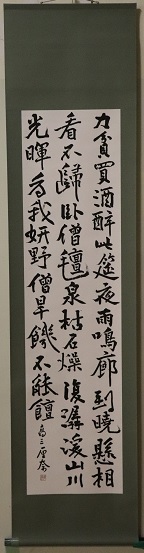 力貧買酒醉此筵夜雨鳴廊到曉懸相
看不歸臥僧氈泉枯石燥復潺湲山川
光暉為我妍野僧旱饑不能饘